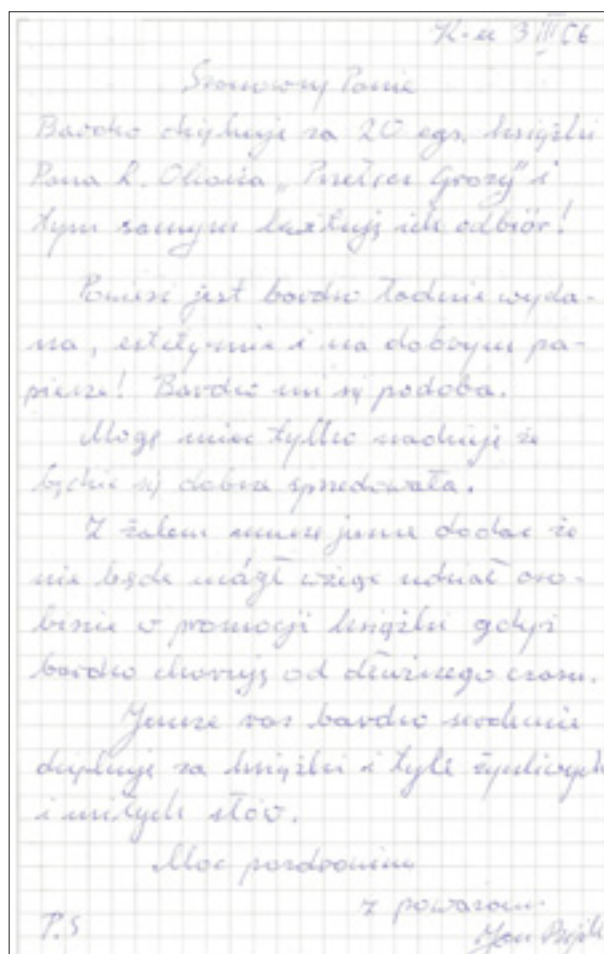 K-ce 3 III 06
Szanowny Panie
Bardzo dziękuję za 20 egz. książki
Pana R. "Przełęcz Grozy" i
tym samym kwituję ich odbiór!
Powieść jest bardzo ładnie wyda-
na, estetycznie i na dobrym pa-
pierze! Bardzo mi się podoba.
Mogę mieć tylko nadzieję że
będzie się dobrze sprzedawała.
Z żalem muszę jeszcze dodać że
nie będę mógł wziąć udział oso-
biście w promocji książki gdyż
bardzo choruję od dłuższego czasu.
Jeszcze raz bardzo serdecznie
dziękuję za książki i tyle życzliwych
i miłych słów.
Moc pozdrowień
z poważaniem
P.S Jan